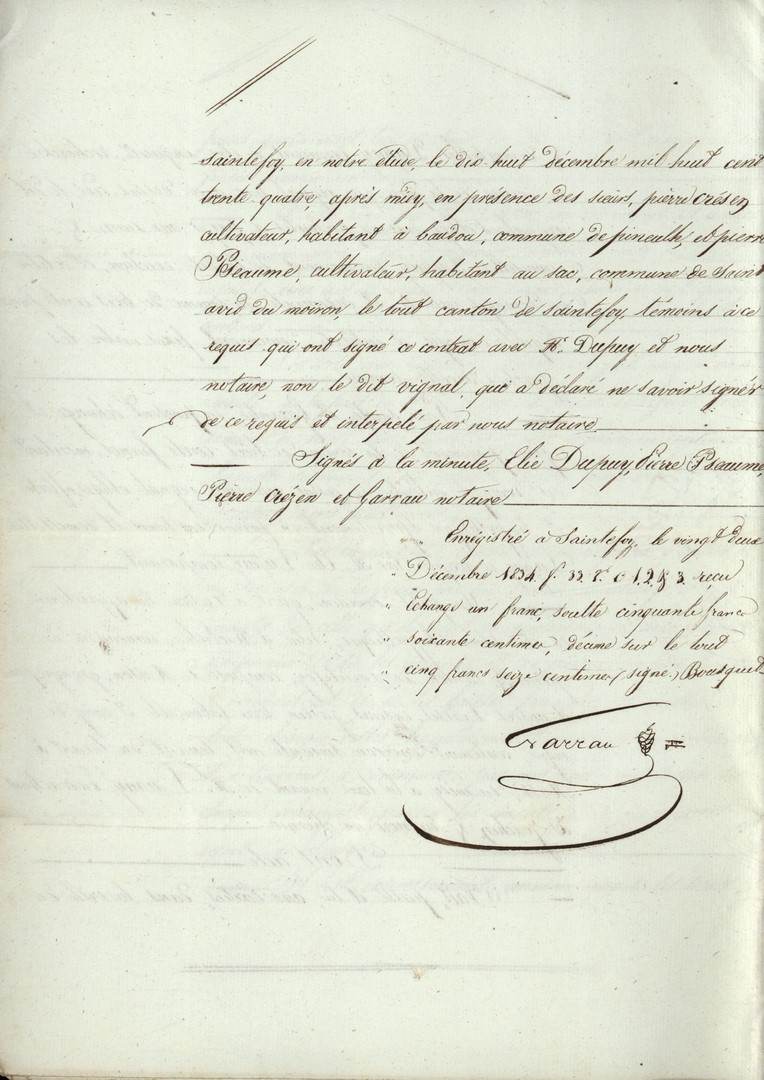 saintefoy, en notre étude, le dix huit décembre mil huit cent
trente quatre, après midy, en présence des sieurs, pierre crésen
cultivateur, habitant à baudou, commune de pineuilh, et pierre
Pseaume, cultivateur, habitant au sac, commune de Saint
avid du moiron, le tout canton de saintefoy, temoins à ce
requis qui ont signé ce contrat avec Mr. Dupuy et nous
notaire, non le dit vignal, qui a déclaré ne savoir signér
de ce requis et interpelé par nous notaire
Signés à la minute, Elie Dupuy, Pierre Pseaume,
Pierre Crézen et Garrau notaire
Enrégistré à Saintefoy, le vingt deux
Décembre 1834. f. 32 r. c 1, 2 & 3. reçu
Echange un franc, soulte cinquante francs
soixante centimes, décime sur le tout
cinq francs seize centimes (signé) Bousquet
Garrau